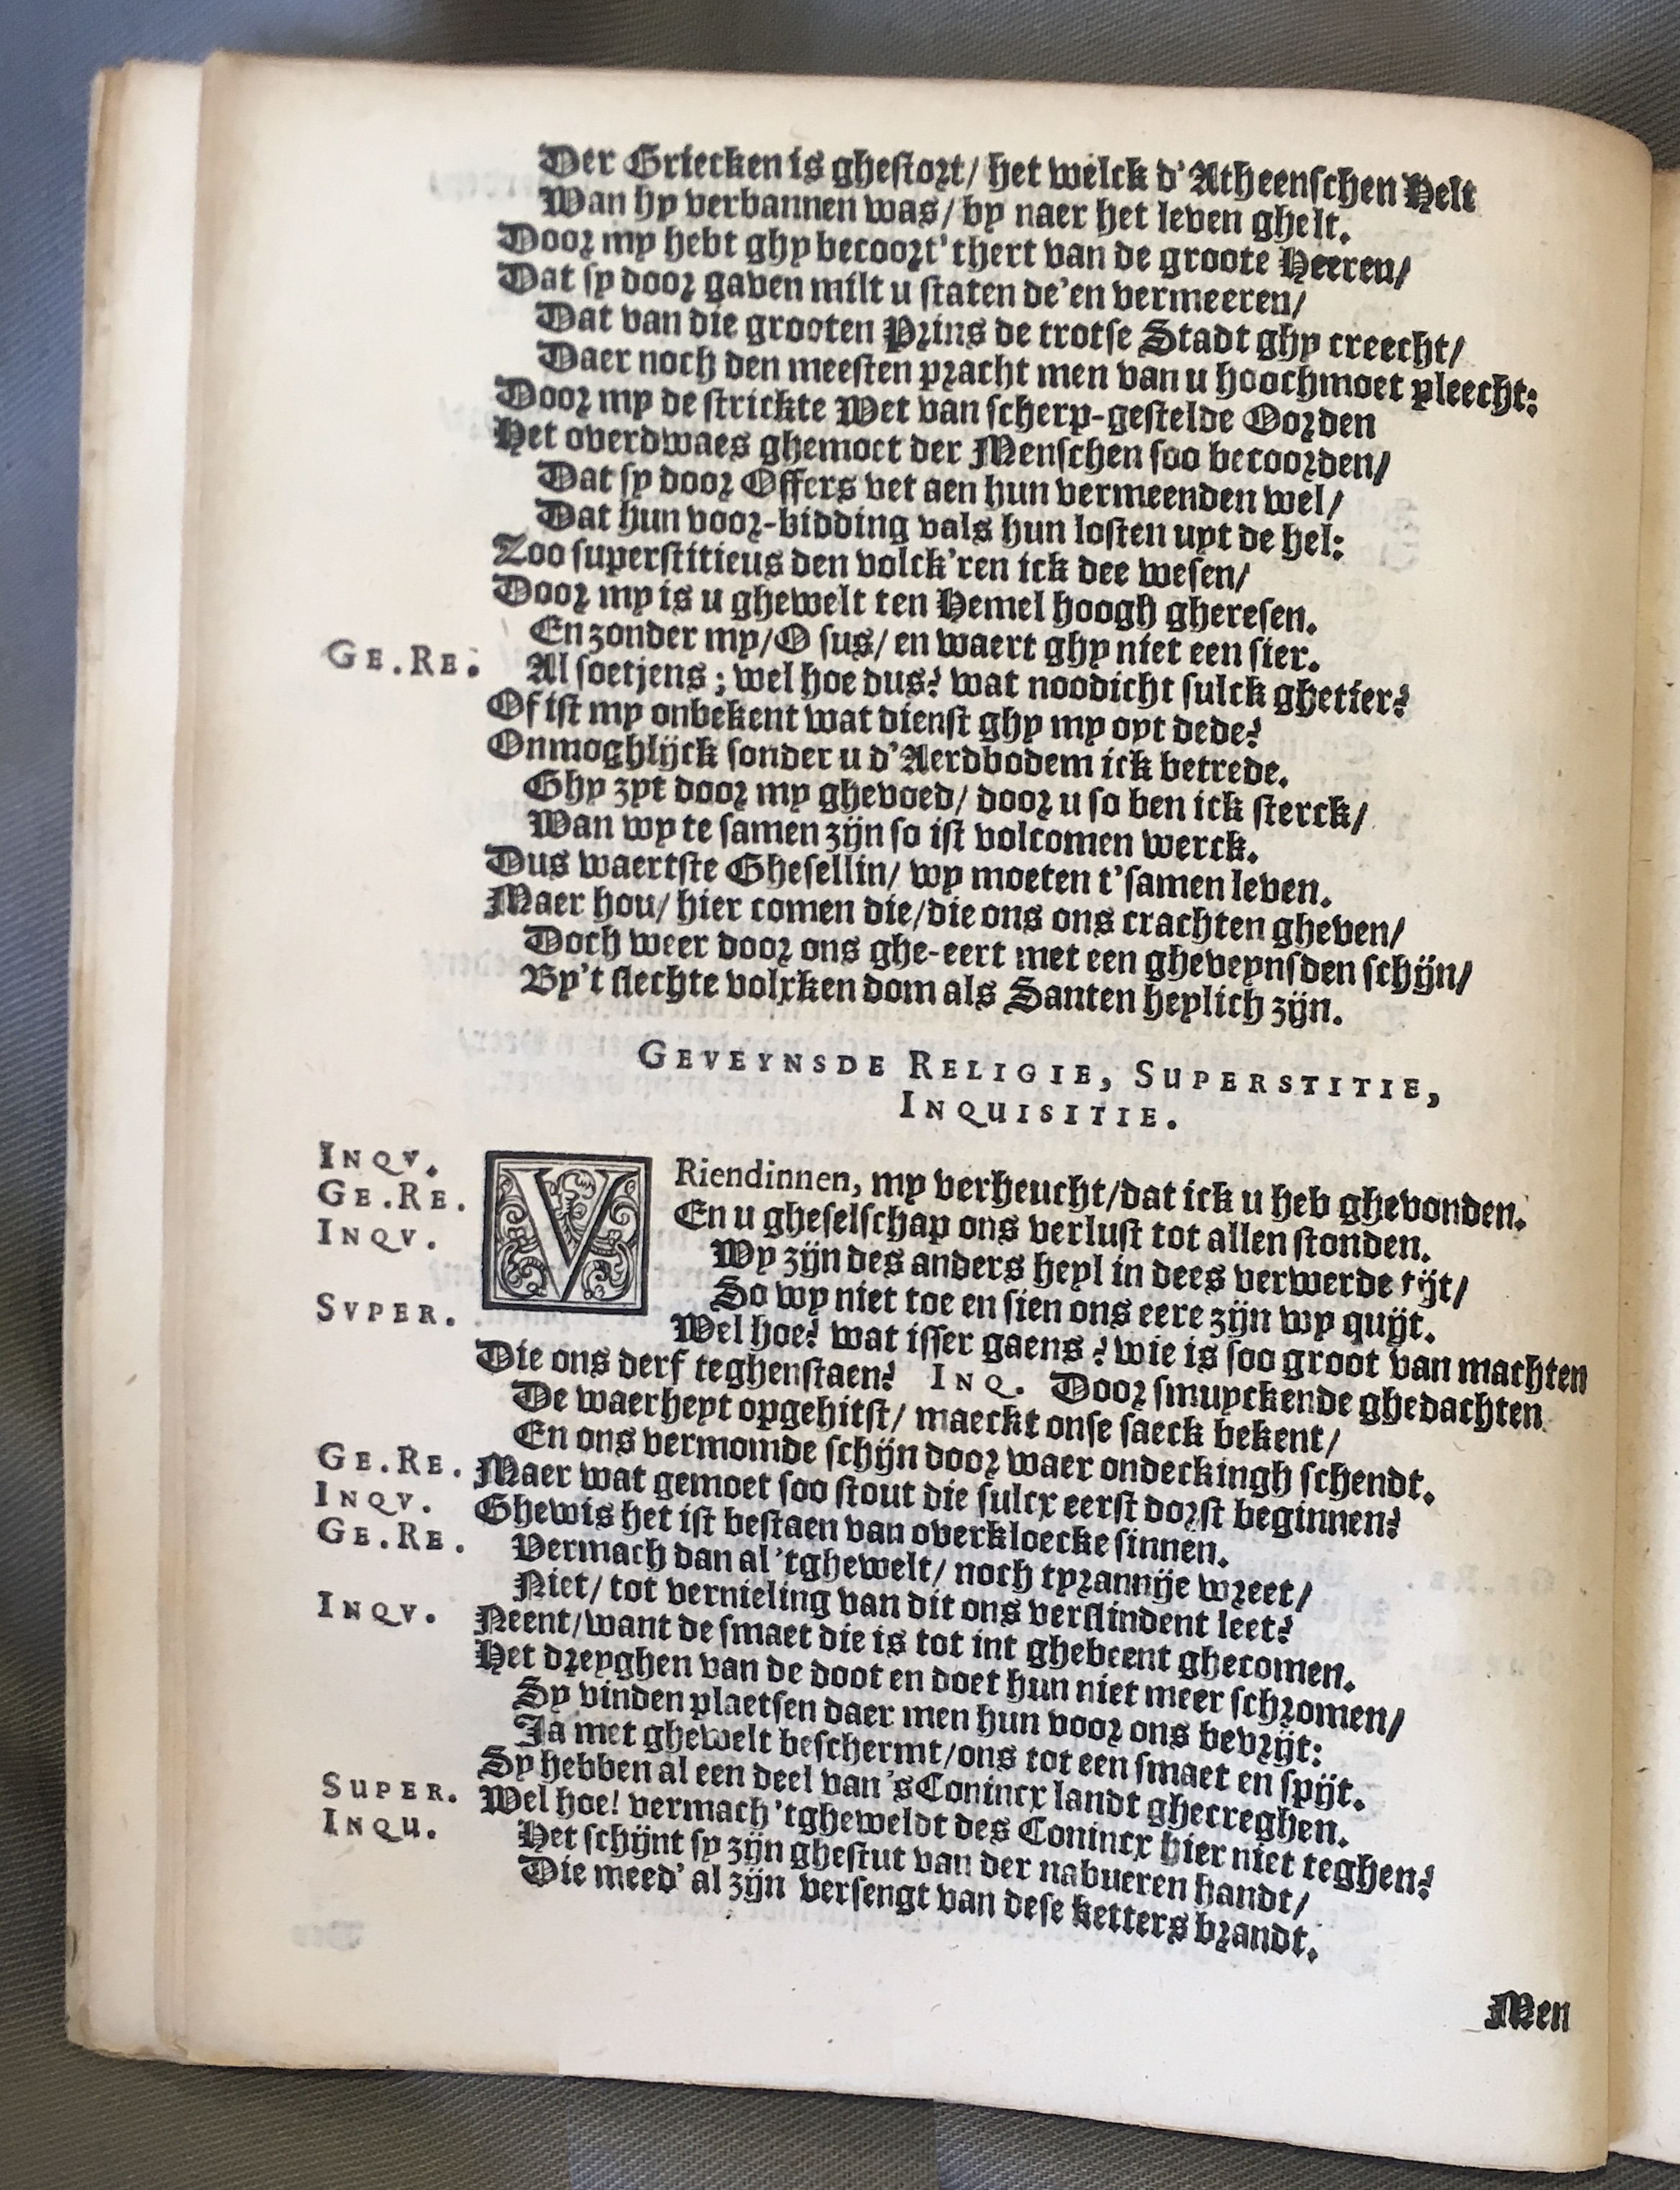 Der Griecken is ghestort/ het welck d'Atheenschen Helt
Wan hy verbannen was/ by naer het leven ghelt.
Door my hebt ghy becoort 'thert van de groote Heeren/
Dat sy door gaven milt u staten de'en vermeeren/
Dat van die grooten Prins de trotse Stadt ghy creecht/
Daer noch den meesten pracht men van u hoochmoet pleecht:
Door my de strickte Wet van scherp-gestelde Oorden
Het overdwaes ghemoet der Menschen soo becoorden/
Dat sy door Offers vet aen hun vermeenden wel/
Dat hun voor-bidding vals hun losten uyt de hel:
Zoo superstitieus den volck'ren ick dee wesen/
Door my is u ghewelt ten Hemel hoogh gheresen.
En zonder my/ O sus/ en waert ghy niet een sier.
GE.RE. Al soetjens ; wel hoe dus? wat noodicht sulck ghetier?
Of ist my onbekent wat dienst ghy my oyt dede?
Onmoghlijck sonder u d'Aerdbodem ick betrede.
Ghy zyt door my ghevoed/ door u so ben ick sterck/
Wan wy te samen zijn so ist volcomen werck.
Dus waertste Ghesellin/ wy moeten t'samen leven.
Maer hou/ hier comen die/ die ons ons crachten gheven/
Doch weer door ons ghe-eert met een gheveynsden schijn/
By't slechte volxken dom als Santen heylich zijn.
GEVEYNSDE RELIGIE, SUPERSTITIE,
INQUISITIE.
INQV. VRiendinnen, my verheucht/ dat ick u heb ghevonden.
GE.RE. En u gheselschap ons verlust tot allen stonden.
INQV. Wy zijn des anders heyl in dees verwerde tijt/
So wy niet toe en sien ons eere zijn wy quijt.
SVPER. Wel hoe? wat isser gaens ? wie is soo groot van machten
Die ons derf teghenstaen? INQ. Door smuyckende ghedachten
De waerheyt opgehitst/ maeckt onse saeck bekent/
En ons vermomde schijn door waer ondeckingh schendt.
GE.RE. Maer wat gemoet soo stout die sulcx eerst dorst beginnen?
INQV. Ghewis het ist bestaen van overkloecke sinnen.
GE.RE. Vermach dan al 'tghewelt/ noch tyrannije wreet/
Niet/ tot vernieling van dit ons verslindent leet?
INQV. Neent/ want de smaet die is tot int ghebeent ghecomen.
Het dreyghen van de doot en doet hun niet meer schromen/
Sy vinden plaetsen daer men hun voor ons bevrijt:
Ja met ghewelt beschermt/ ons tot een smaet en spijt.
Sy hebben al een deel van 's Conincx landt ghecreghen.
SUPER. Wel hoe! vermach 'tgheweldt des Conincx hier niet teghen?
INQU. Het schijnt sy zijn ghestut van der nabueren handt/
Die meed' al zijn versengt van dese ketters brandt.
Men